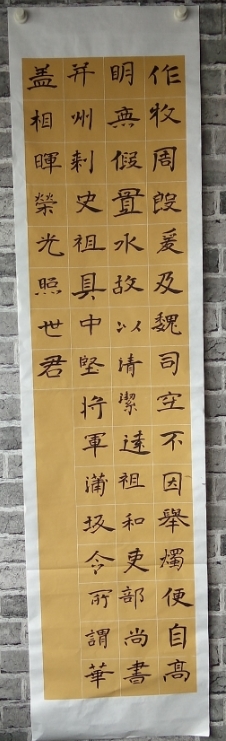 作牧周叚爰及魏司空不因舉燭便自高
明無假置水故以清潔逺祖和吏部尚書
并州刺史祖具中堅將軍蒲坂令所謂華
盖相暉榮光照世君